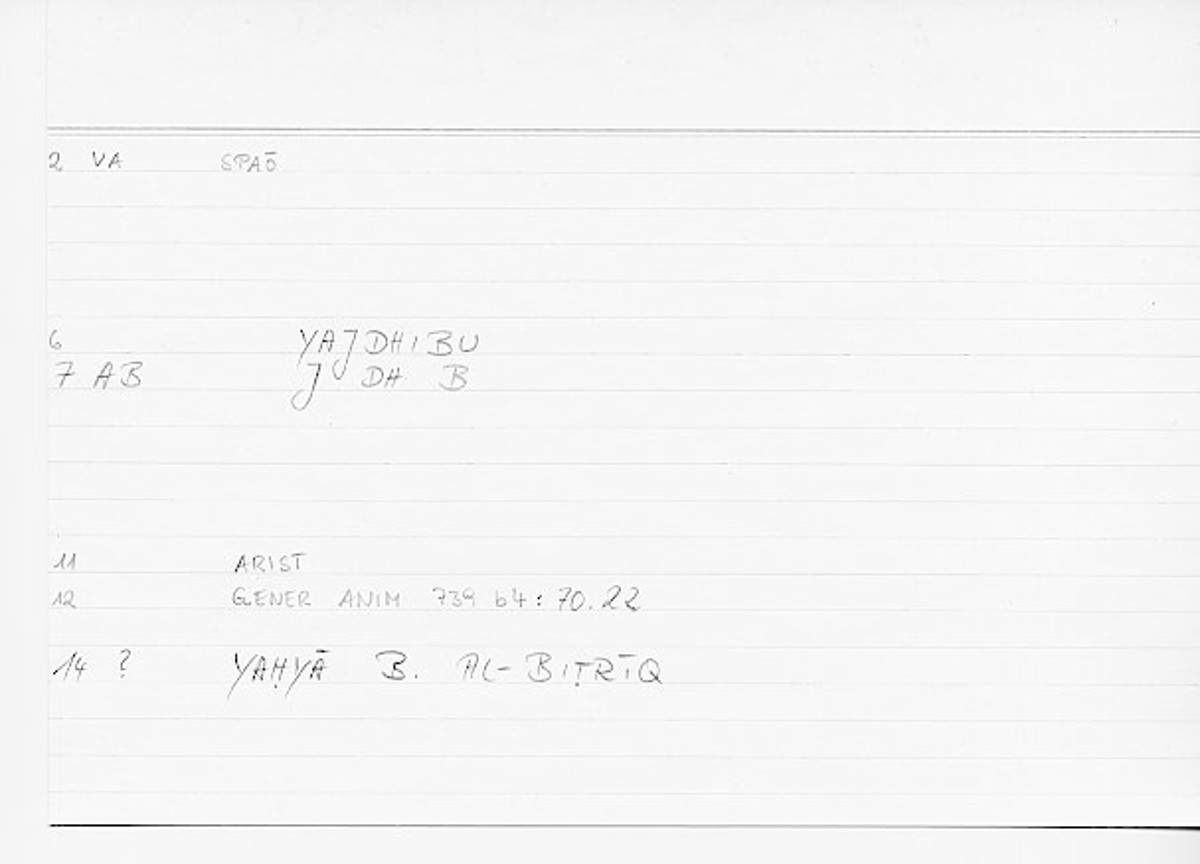 2 VA SPAŌ
6 YAJDHIBU
7 AB J DH B
11 ARIST
12 GENER ANIM 739 b4: 70.22
14 ? YAḤYĀ B. AL-BIṬRĪQ